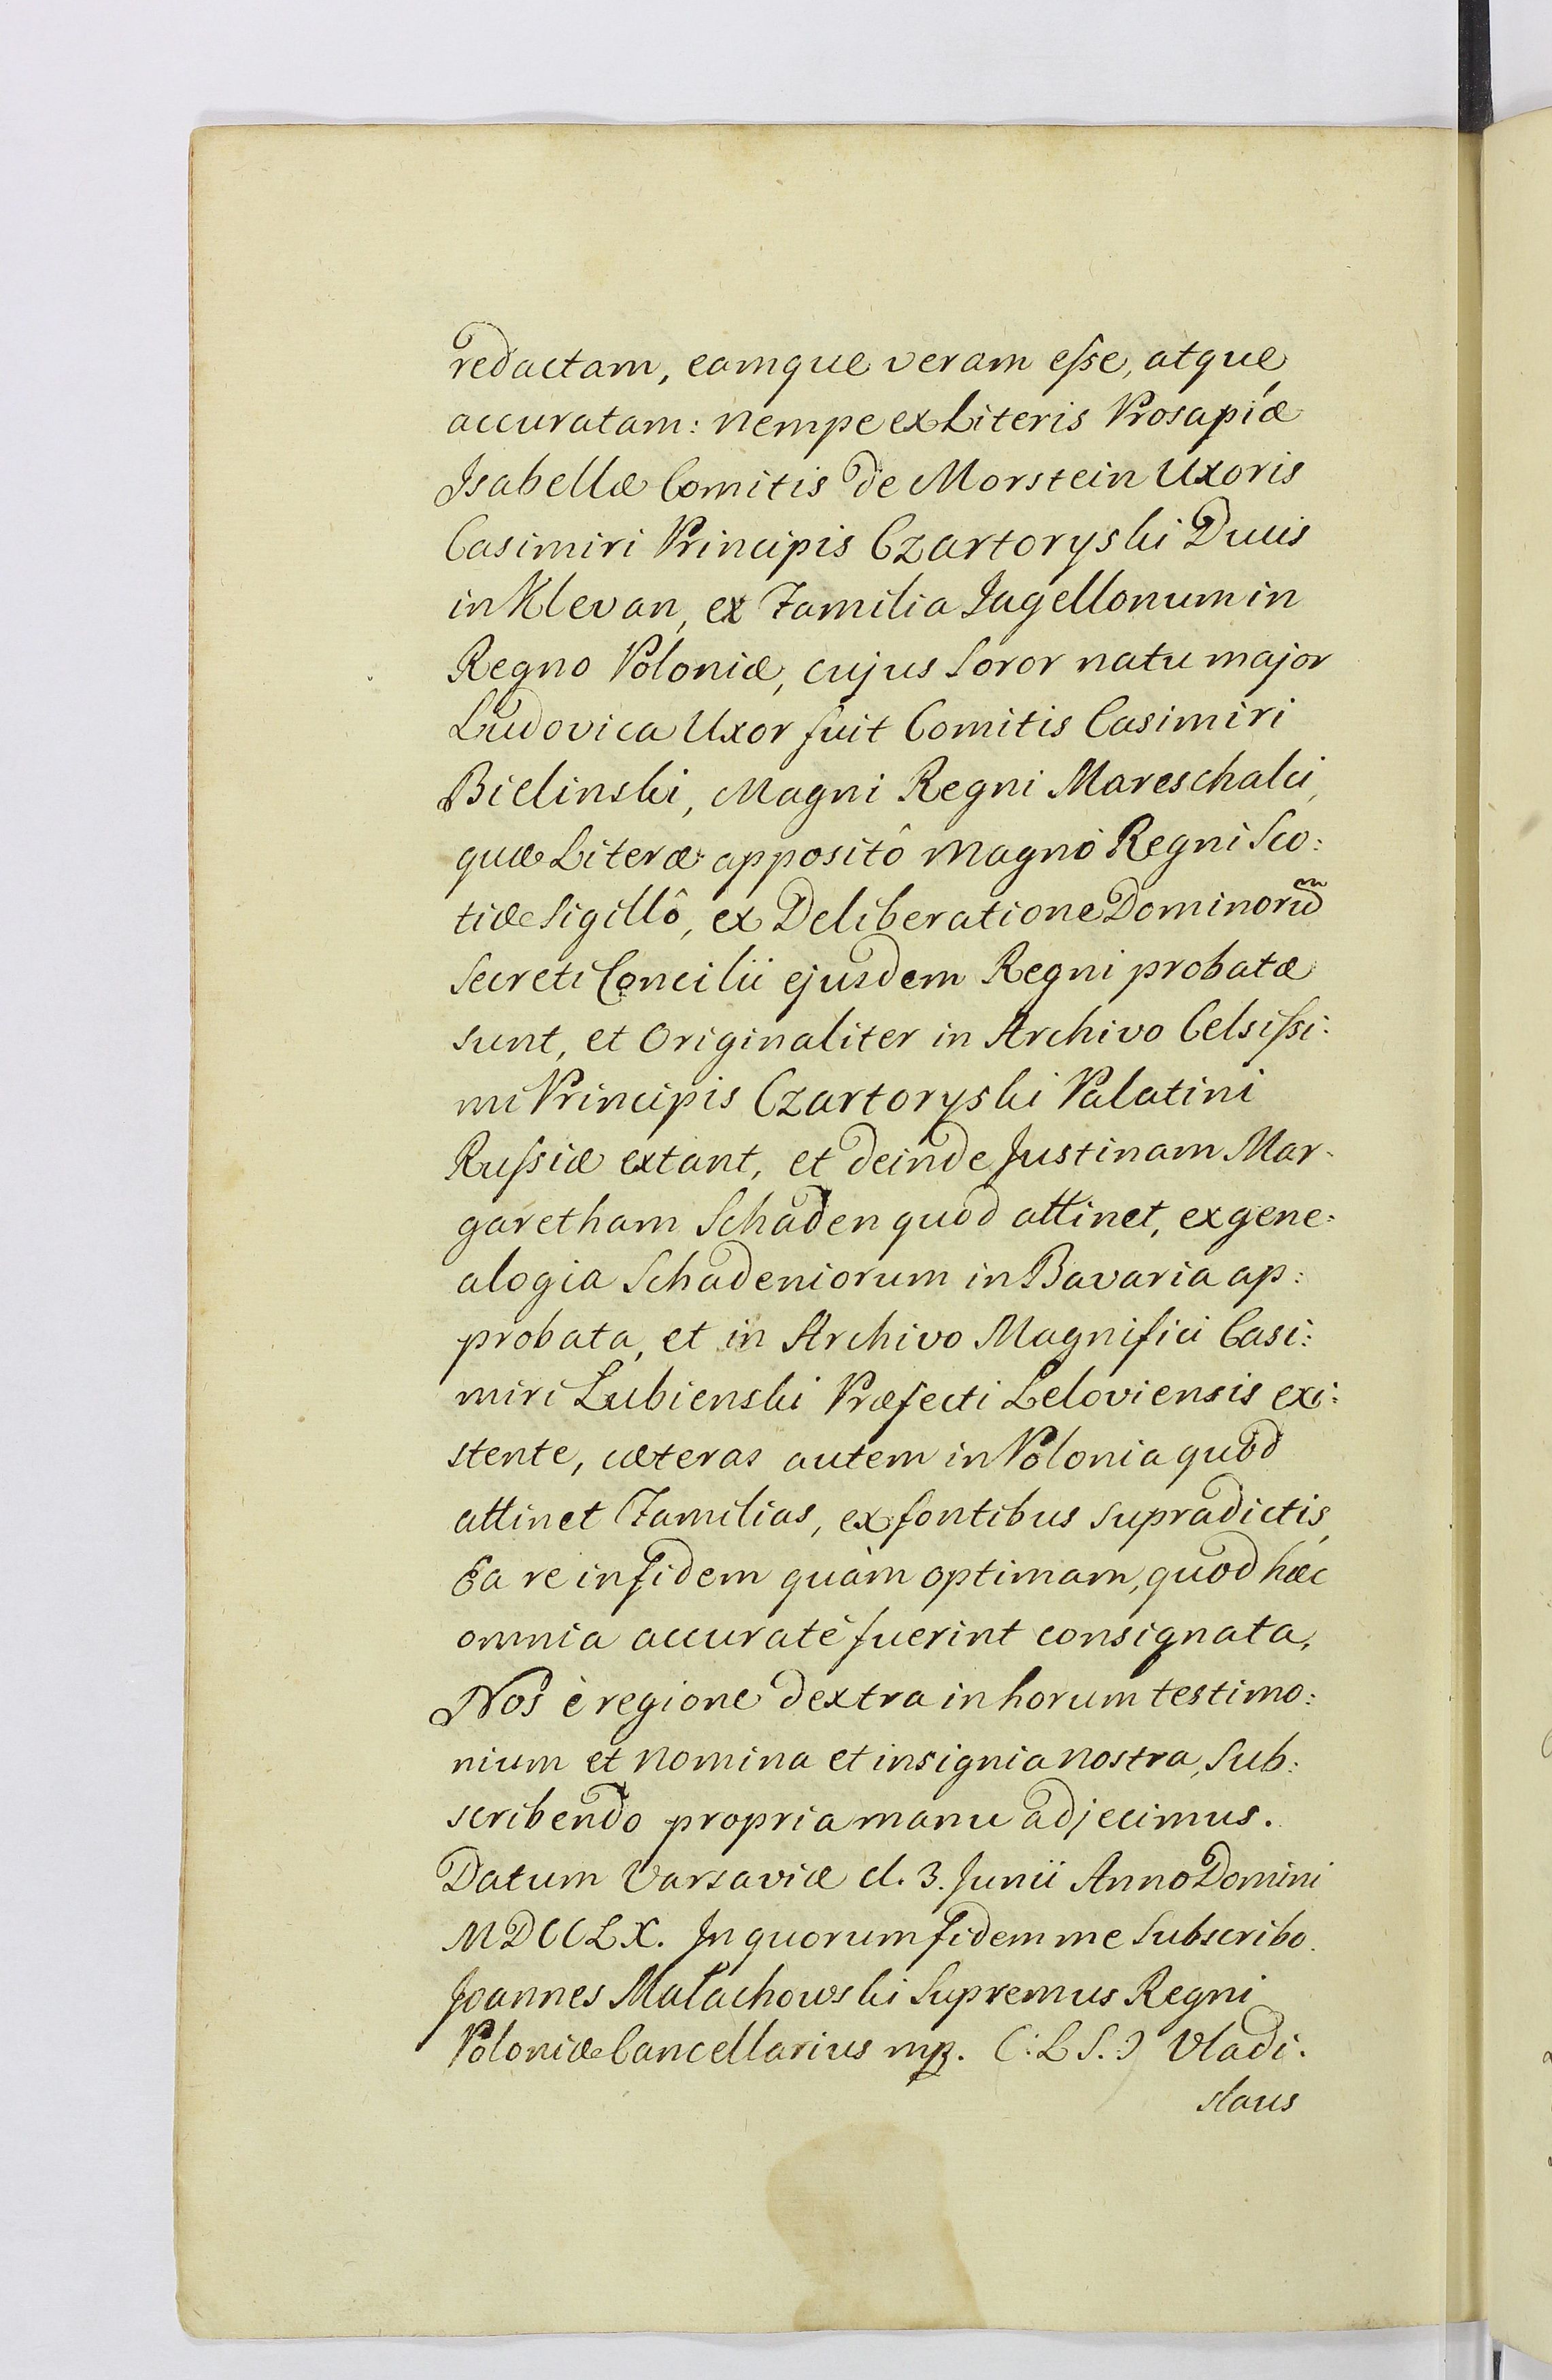 redactam, eamque veram eſse, atque
accuratam: nempe ex Literis Prosapiæ
Isabellæ Comitis de Morstein Uxoris
Casimiri Principis Czartoryski Ducis
in Klevan, ex Familia Jagellonum in
Regno Poloniæ, cujus Soror natu major
Ludovica Uxor fuit Comitis Casimiri
Bielinski, Magni Regni Mareschalci,
quæ Literæ appositô magnô Regni Sco:
tiæ Sigillô, ex Deliberatione Dominorũm
Secreti Concilii ejusdem Regni probatæ
sunt, et Originaliter in Archivo Celsiſsi:
mi Principis Czartoryski Palatini
Ruſsiæ extant, et deinde Justinam Mar-
garetham Schaden quod attinet, ex gene:
alogia Schadeniorum in Bavaria ap:
probata, et in Archivo Magnifici Casi:
miri Lubienski Præfecti Leloviensis exi:
stente, cæteras autem in Polonia quod
attinet Familias, ex fontibus supradictis,
Ea re in fidem quàm optimam, quod hæc
omnia accuratè fuerint consignata,
Nos è regione dextra in horum testimo:
nium et nomina et insignia nostra, sub:
scribendo propria manu adjecimus.
Datum Varsaviæ d. 3. Junii Anno Domini
MDCCLX. In quorum fidem me Subscribo.
Joannes Małachowski Supremus Regni
Poloniæ Cancellarius mp. (: L S. :) Vladi:
slaus